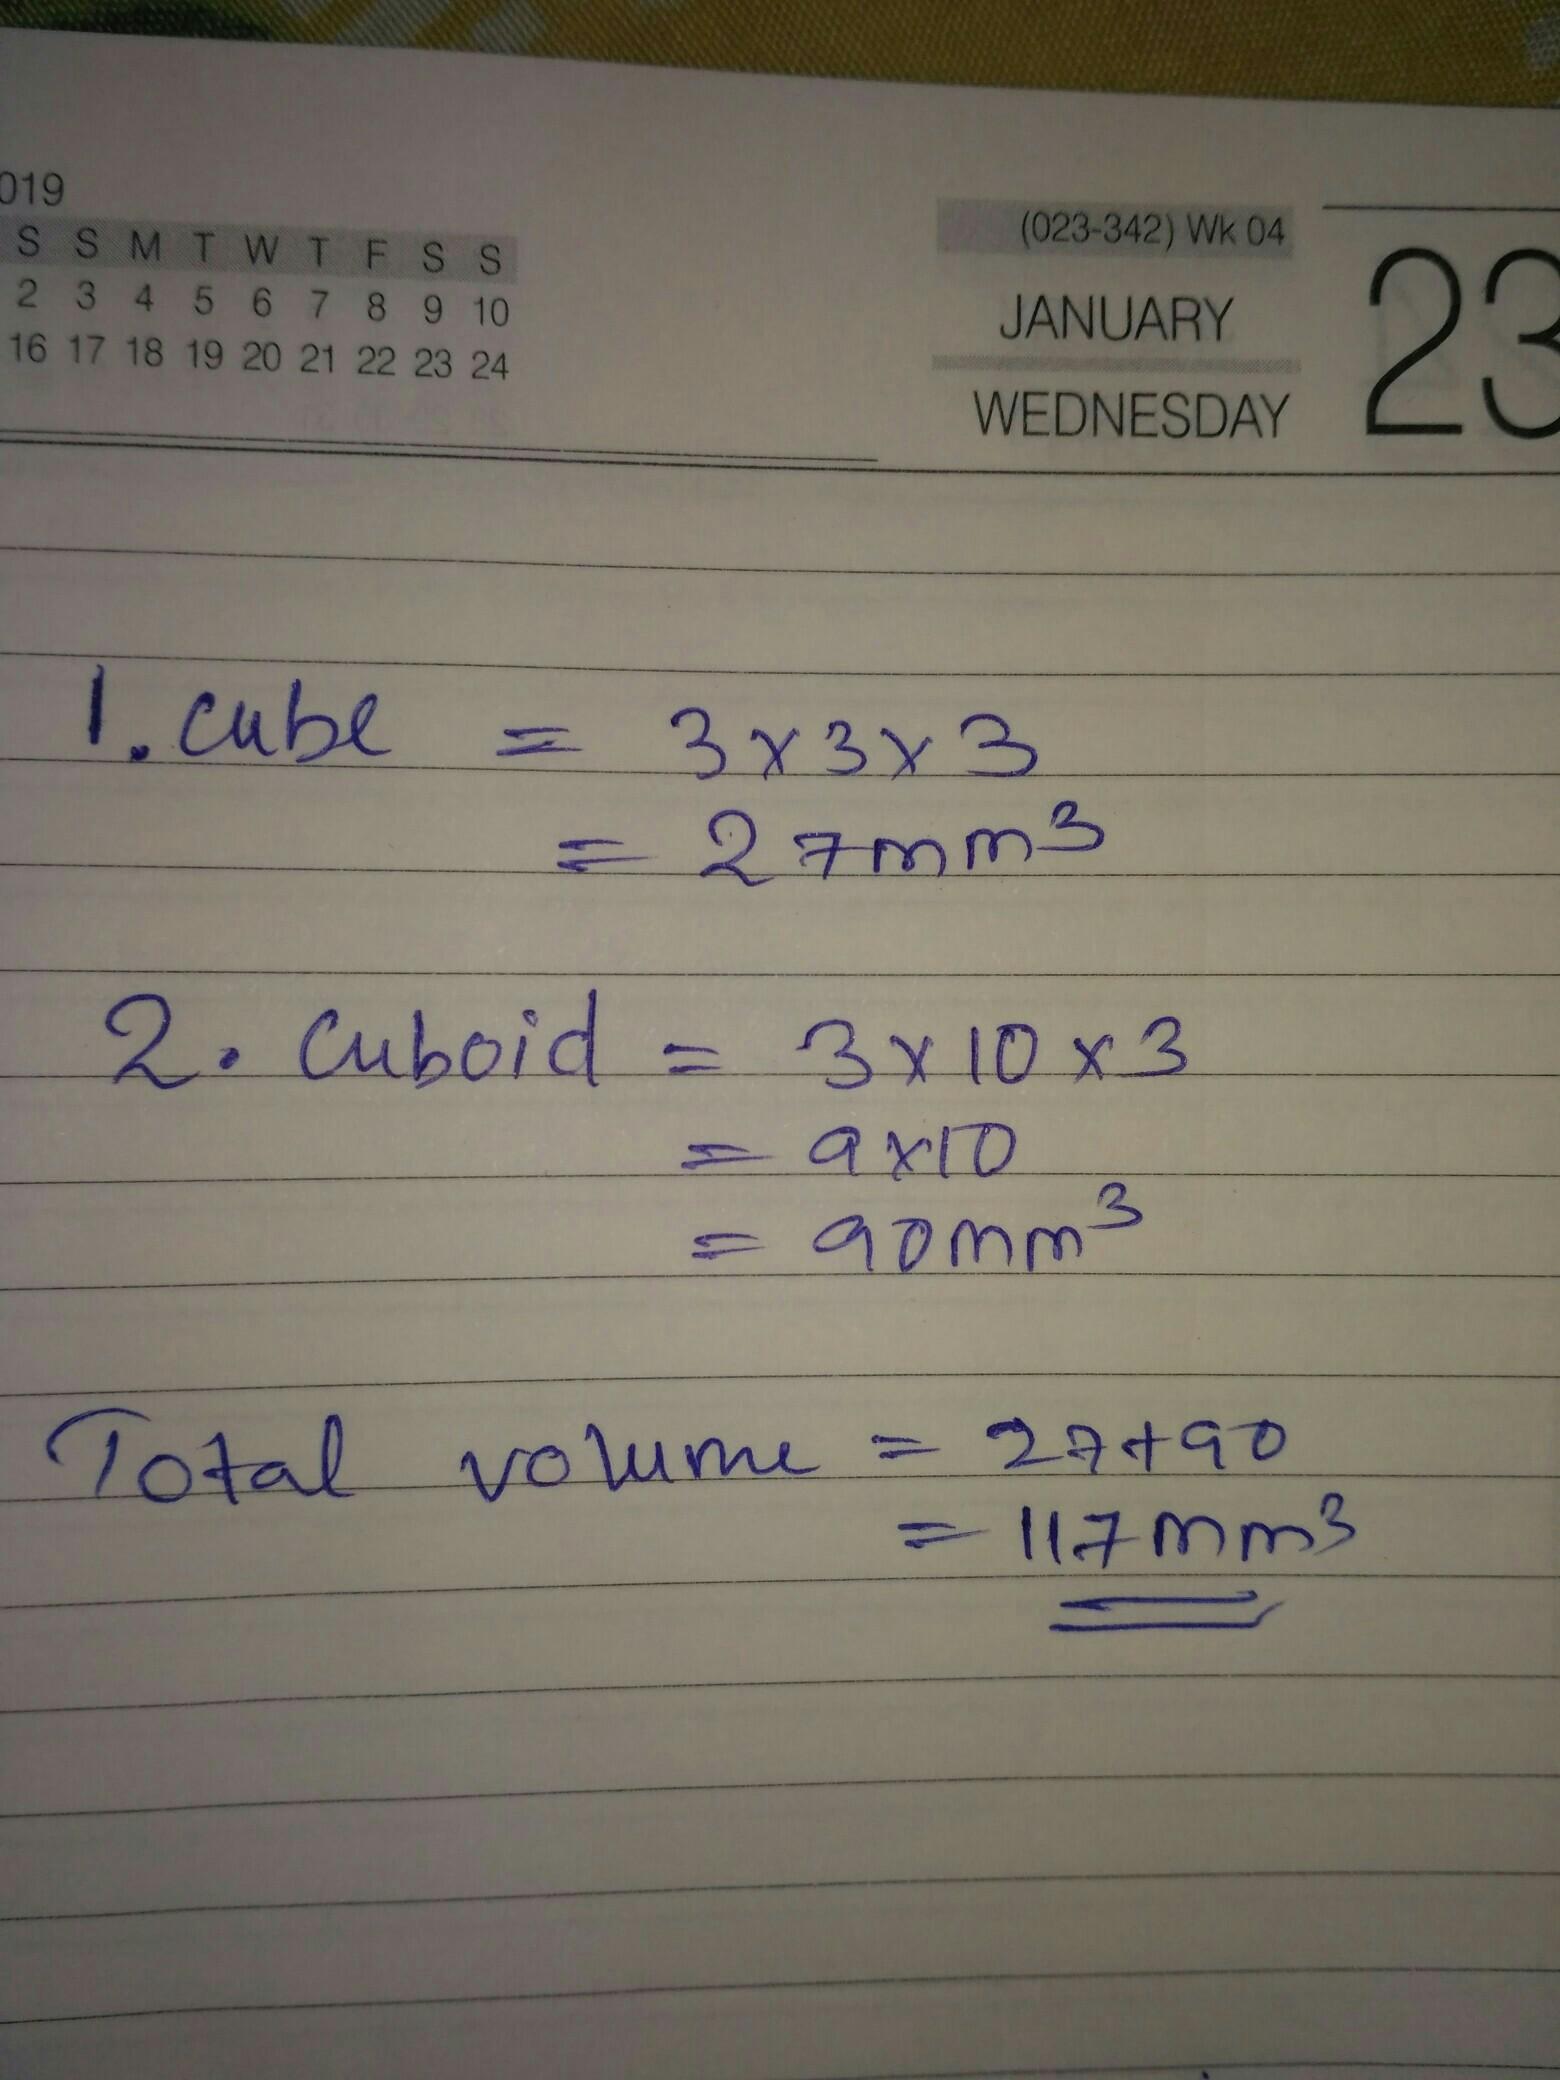 019
S S M T W T F S S
2 3 4 5 6 7 8 9 10
16 17 18 19 20 21 22 23 24
(023-342) Wk 04
JANUARY
WEDNESDAY
23
1. cube = 3x3x3
= 27mm³
2. Cuboid = 3x10x3
= 9x10
= 90mm³
Total volume = 27+90
= 117mm³